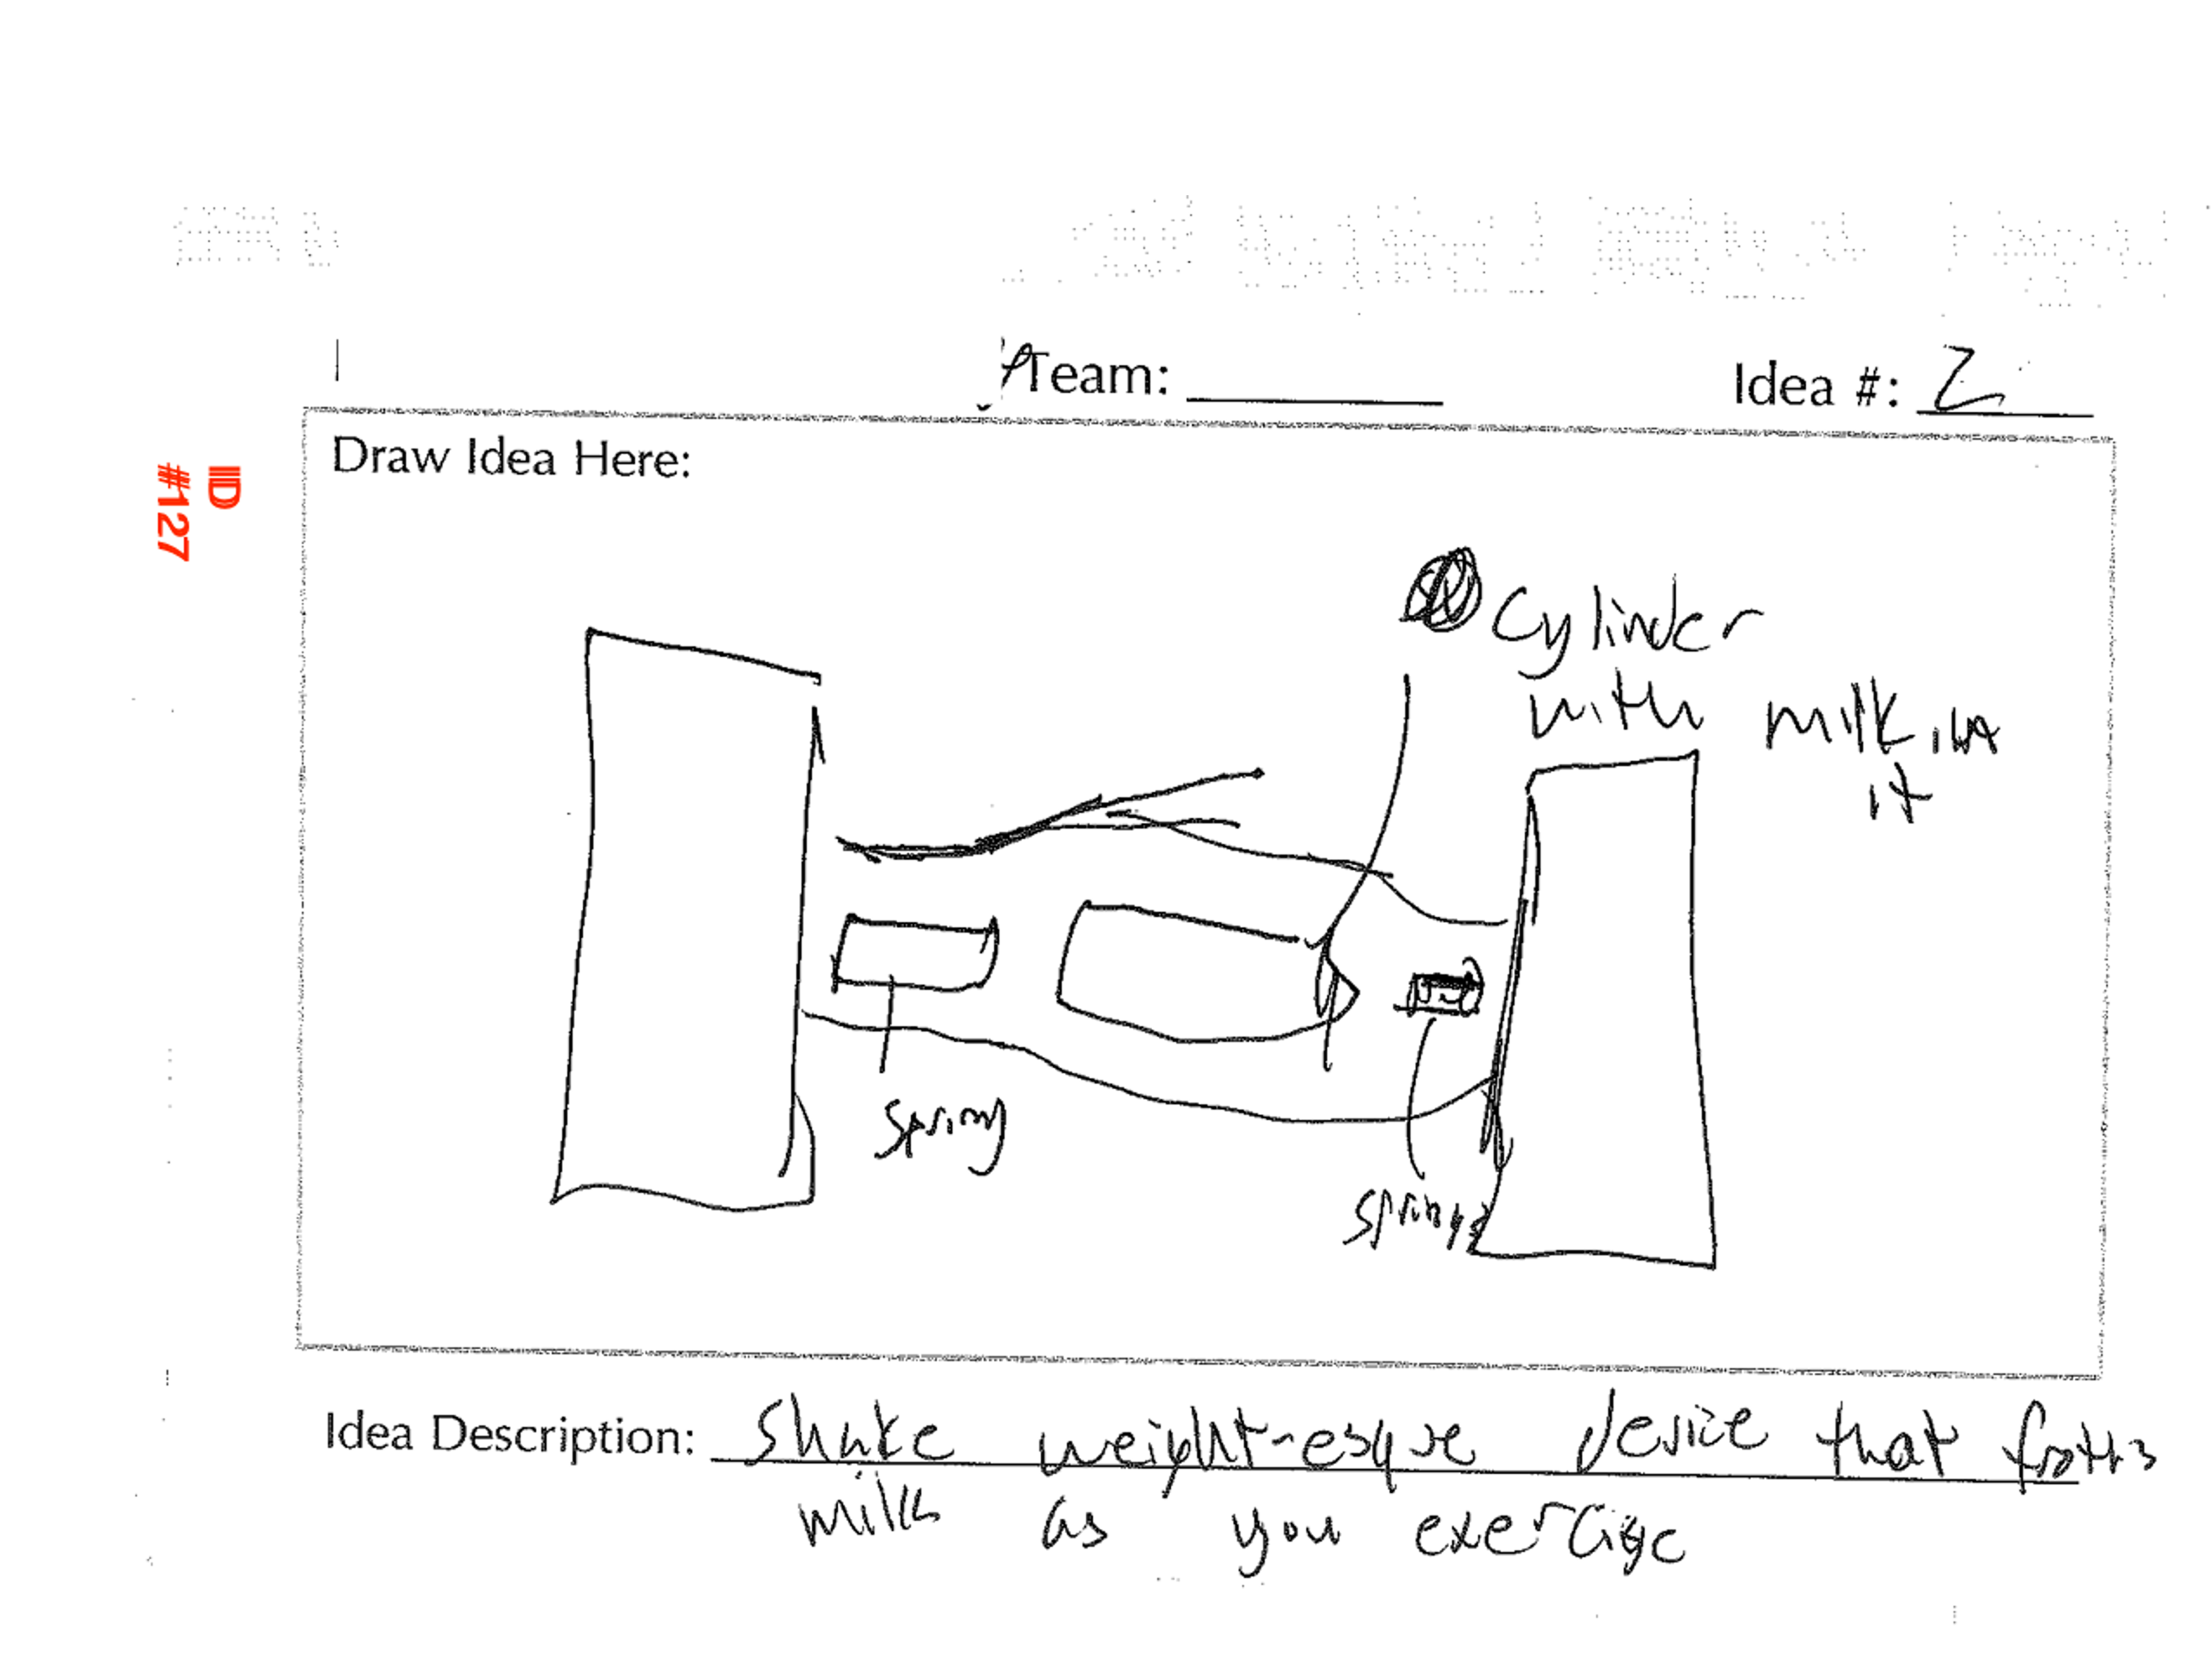 Team:
Idea #: 2
Draw Idea Here:
IID
#127
Cylinder
with milk in
it
spring
spring
Idea Description: Shake weight-esque device that froths
milk as you exercise